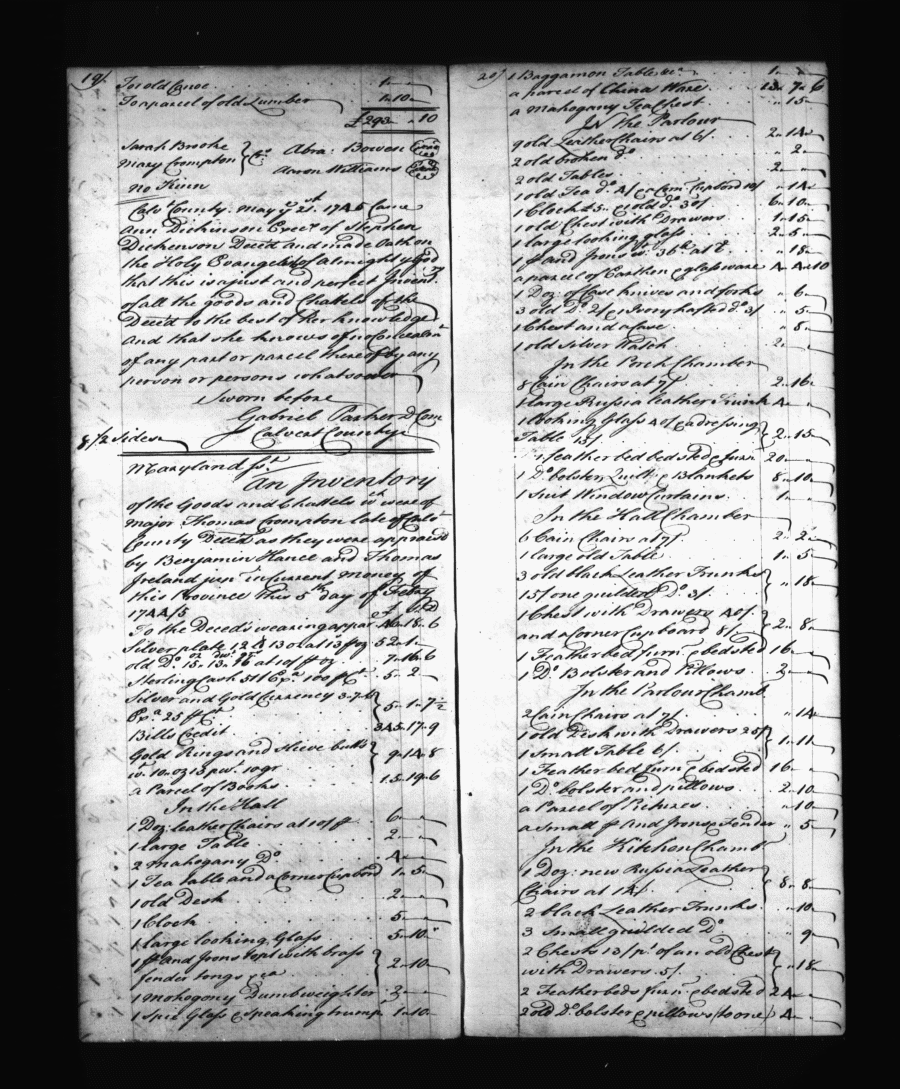 19/.
1 old Canoe 1 " "
To a parcel of old Lumber 1 " 10 "
£293 " " 10
Sarah Brooke
Mary Crompton
no Kinn
Abra: Bowen
Aaron Williams
Calv. County. May ye 21st. 1745 Came
Ann Dickinson Execr. of Stephen
Dickenson Deced and made oath on
the Holy Evangelist of almighty God
that this is a just and perfect Inventy.
of all the goods and Chattels of the
Deced to the best of her knowledge
and that she knows of no Concealmt
of any part or parcel thereof by any
person or persons whatsoever
Sworn before
Gabriel Parker D Com
Calvert County
8 1/2 Sides
Maryland Sst.
An Inventory
of the Goods and Chattels wch were of
Major Thomas Crompton late of Calv.
County Deced as they were appraisd
by Benjamin Hance and Thomas
Ireland junr. in Current money of
this Province this 5th day of Febry
1744/5
To the Deceds wearing appar 46 " 18 " 6
Silver plate 52 " 1 "
old Do. 15. 13. 16 at 10/ ℔ oz. 7 " 16 " 6
Sterling Cash 5 " 2 "
Silver and Gold Currency 3.7.6
Exa. 25 ℔ Ct. 5 " 1 " 7 1/2
Bills Credit 345 " 17 " 9
Gold Rings and Sleeve butts
wt. 1 oz 15 pwt. 10 gr. 9 " 14 " 8
a Parcel of Books 15 " 19 " 6
In the Hall
1 Doz. leather Chairs at 10/ ℔ 6 " "
1 large Table 2 " "
2 Mahogany Do. 4 " "
1 Tea table and a Corner Cupbord 1 " 5 "
1 old Desk 2 " "
1 Clock 5 " "
1 large looking Glass 5 " 10 "
1 pr. and Irons tept with brass
fender tongs &ca 2 " 10 "
1 Mohogony Dumbweighter 2 " "
1 Spie Glass & speaking trumpt 1 " 10 "
20/.
1 Baggamon Table &c. 1 " "
a parcel of China Ware 13 " 7 " 6
a Mahogany Tea Chest " 15 "
In the Parlour
9 old Leather Chairs at 6/. 2 " 14 "
2 old broken do. " 2 "
2 old Tables 2 " "
1 old Tea do. 4/ & a Corn. Cupbord 10/ " 14 "
1 Clock £5 " & 1 old do. 30/ 6 " 10 "
1 old Chest with Drawers 1 " 15 "
1 large looking glass 2 " 5 "
1 pr. and Irons wt. 36 lb. at 6 " 18 "
a parcel of Earthen & glass ware 4 " 4 " 10
1 Doz. of Case knives and forks " 6 "
3 old Do. 2/ & Ivory hafted do. 3/ " 5 "
1 Chest and a Case " 8 "
1 old Silver Watch 2 " "
In the Porch Chamber
8 Cain Chairs at 7/. 2 " 16 "
1 large Russia leather Trunk 4 " "
1 looking Glass 40/ & a dressing
Table 15/ 2 " 15
1 feather bed bedsted & furn. 20 "
1 Do. bolster Quilt & 3 blankets 8 " 10 "
1 Suit Window Curtains 1 " "
In the Hall Chamber
6 Cain Chairs at 7/. 2 " 2
1 large old Table 1 " 5
3 old black Leather Trunks
15/ one guilded Do. 3/. " 18
1 Chest with Drawers 40/.
and a Corner Cupboard 8/. 2 " 8 "
1 Featherbed furn. & bedsted 16 "
1 Do. Bolster and Pillows 2 "
In the Parlour Chamb.
2 Cain Chairs at 7/. " 14
1 old Desk with Drawers 25/
1 Small Table 6/. 1 " 11
1 Featherbed furn. & bedsted 16 "
1 Do. bolster and pillows 2 " 10
a Parcel of Pictures " 10
a Small pr. And Irons & Fender " 5
In the Kitchen Chamb.
1 Doz. new Russia Leather
Chairs at 14/. 8 " 8
2 black Leather Trunks " 10
3 Small guilded Do. " 9
2 Chests 13/ pt. of an old Chest
with Drawers 5/. " 18
2 Featherbeds furn. & bedsted 24 "
2 old Do. bolster & pillows (to one) 4 "